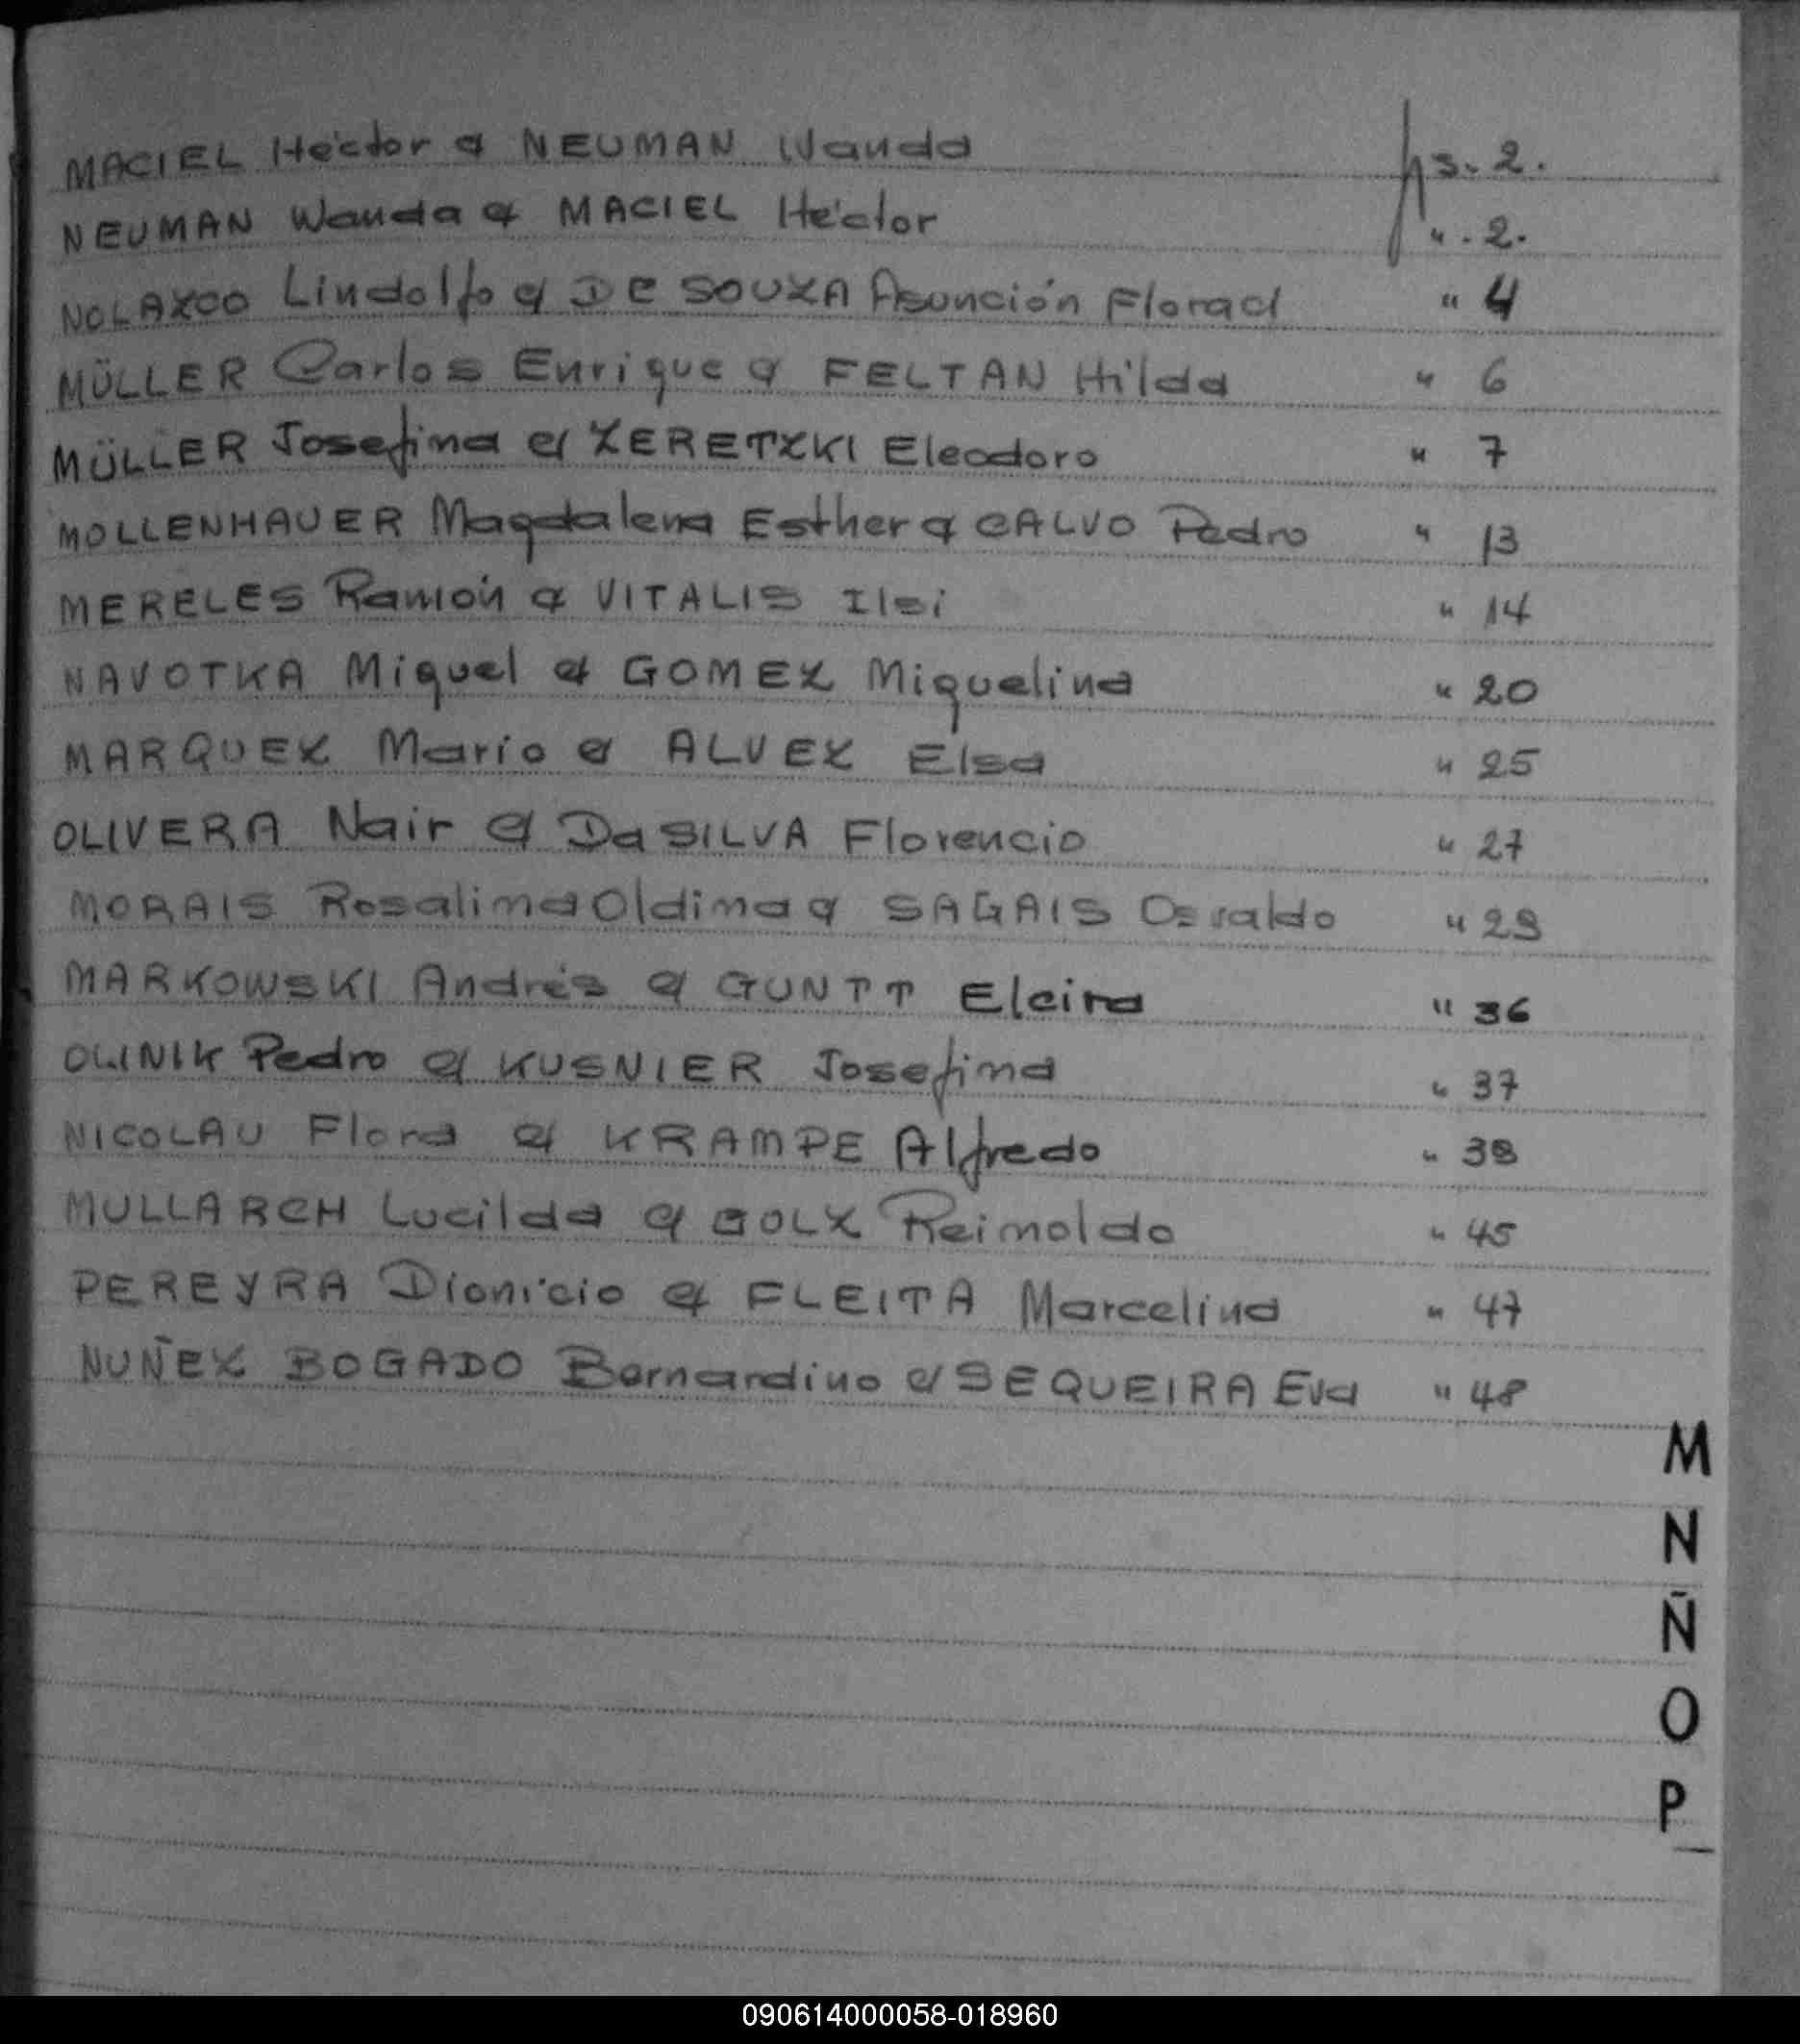 MACIEL Héctor c/ NEUMAN Wanda fs. 2.
NEUMAN Wanda c/ MACIEL Héctor " . 2.
NOLAZCO Lindolfo c/ DE SOUZA Asunción Floraci " 4
MÜLLER Carlos Enrique c/ FELTAN Hilda " 6
MÜLLER Josefina c/ ZERETZKI Eleodoro " 7
MOLLENHAUER Magdalena Esther c/ CALVO Pedro " 13
MERELES Ramón c/ VITALIS Ilsi " 14
NAVOTKA Miguel c/ GOMEZ Miguelina " 20
MARQUEZ Mario c/ ALVEZ Elsa " 25
OLIVERA Nair c/ Da SILVA Florencio " 27
MORAIS Rosalina Oldina c/ SAGAIS Osvaldo " 29
MARKOWSKI Andrés c/ GUNTT Elcira " 36
OLINIK Pedro c/ KUSNIER Josefina " 37
NICOLAU Flora c/ KRAMPE Alfredo " 39
MULLARCH Lucilda c/ GOLZ Reinoldo " 45
PEREYRA Dionicio c/ FLEITA Marcelina " 47
NUÑEZ BOGADO Bernardino c/ SEQUEIRA Eva " 48
M
N
Ñ
O
P
090614000058-018960